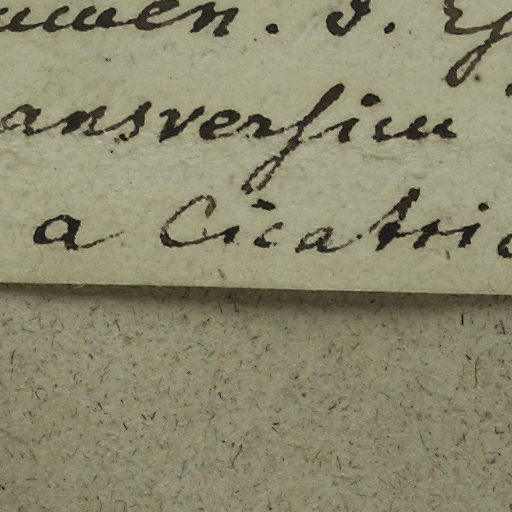 umen. J.
ansversim
a Cicatri